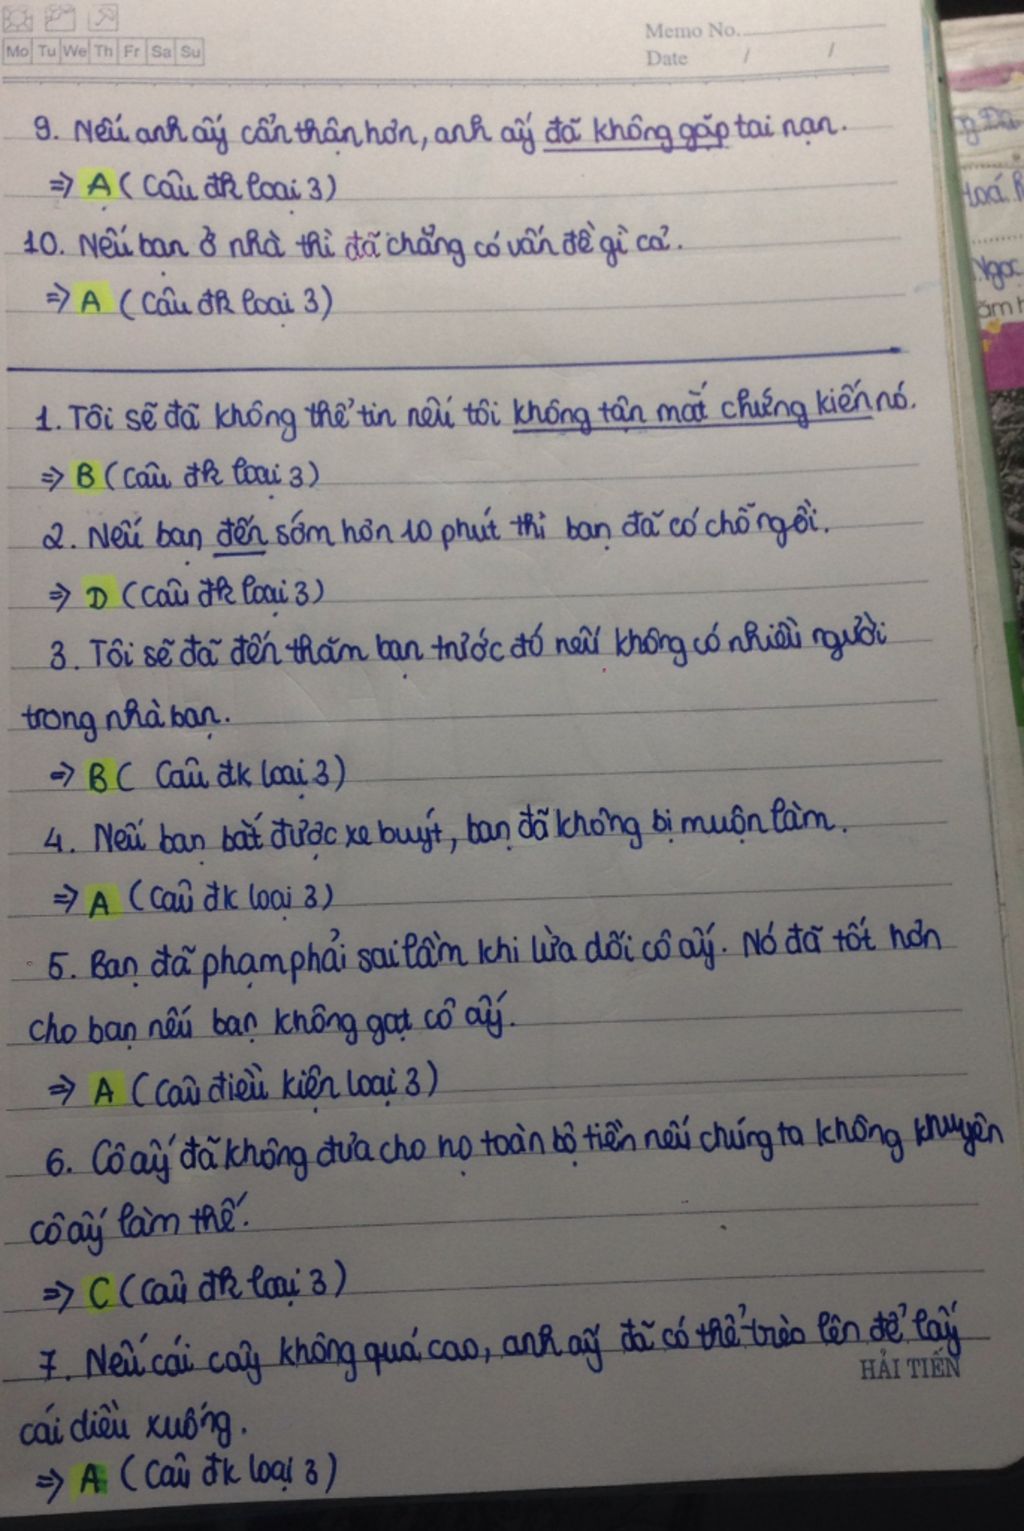 Mo Tu We Th Fr Sa Su
Memo No.
Date / /
9. Nếu anh ấy cẩn thận hơn, anh ấy đã không gặp tai nạn.
⇒ A (Câu đk loại 3)
10. Nếu bạn ở nhà thì đã chẳng có vấn đề gì cả.
⇒ A (Câu đk loại 3)
1. Tôi sẽ đã không thể tin nếu tôi không tận mắt chứng kiến nó.
⇒ B (Câu đk loại 3)
2. Nếu bạn đến sớm hơn 10 phút thì bạn đã có chỗ ngồi.
⇒ D (Câu đk loại 3)
3. Tôi sẽ đã đến thăm bạn trước đó nếu không có nhiều người
trong nhà bạn.
⇒ B (Câu đk loại 3)
4. Nếu bạn bắt được xe buýt, bạn đã không bị muộn làm.
⇒ A (Câu đk loại 3)
5. Bạn đã phạm phải sai lầm khi lừa dối cô ấy. Nó đã tốt hơn
cho bạn nếu bạn không gạt cô ấy.
⇒ A (Câu điều kiện loại 3)
6. Cô ấy đã không đưa cho họ toàn bộ tiền nếu chúng ta không khuyên
cô ấy làm thế.
⇒ C (Câu đk loại 3)
7. Nếu cái cây không quá cao, anh ấy đã có thể trèo lên để lấy
HẢI TIẾN
cái diều xuống.
⇒ A (Câu đk loại 3)
Hoá
Ngọc